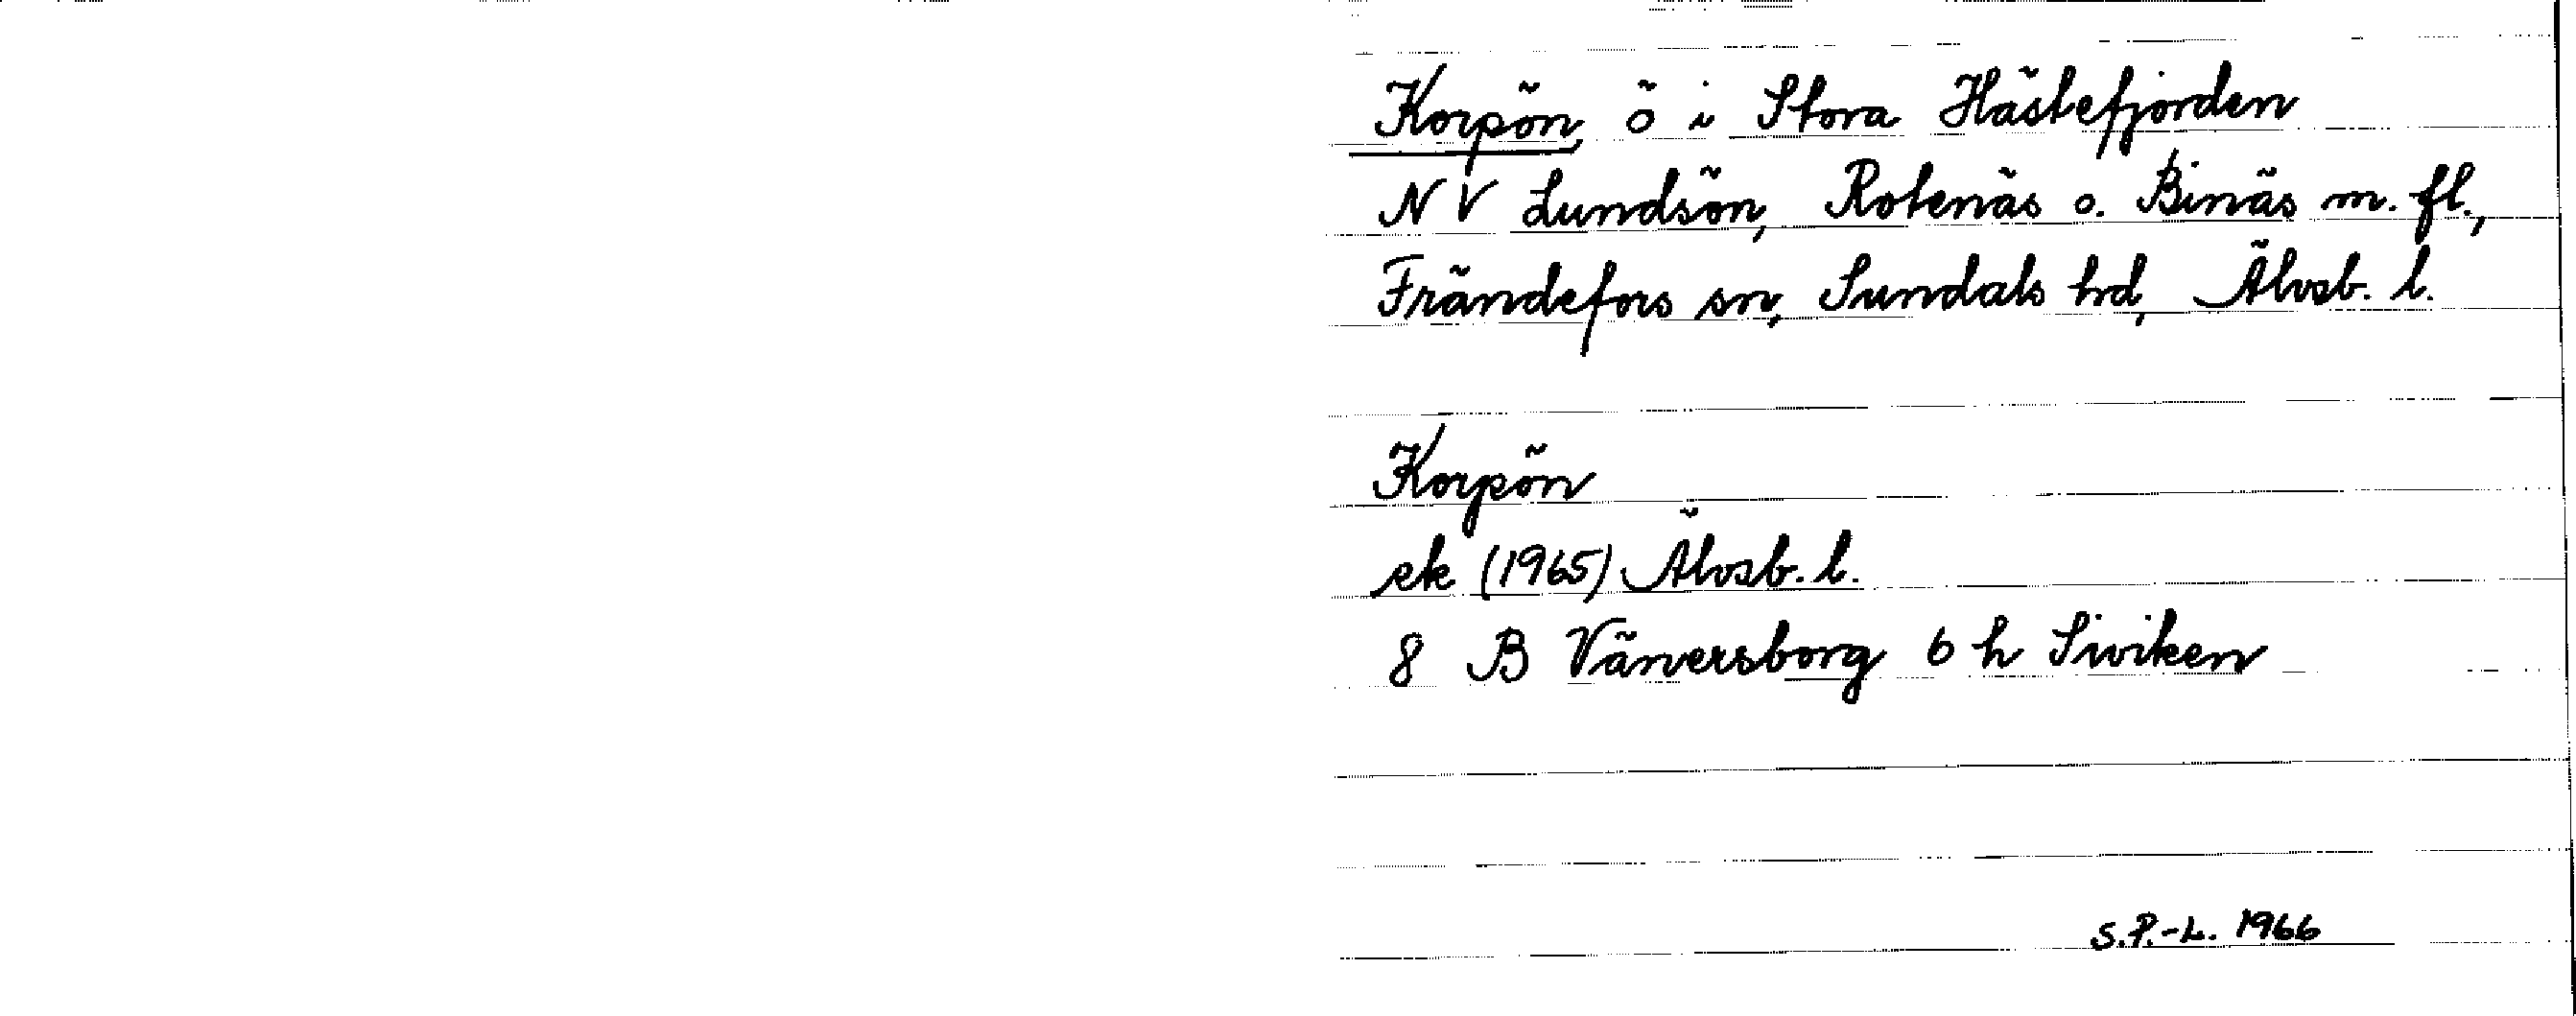 Korpön, ö i Stora Hästefjorden
NV Lundsön, Rotenäs o. Binäs m. fl.,
Frändefors sn, Sundals hd, Älvsb. l.
Korpön
ek (1965) Älvsb. l.
8 B Vänersborg 6 h Siviken
S.P.-L. 1966